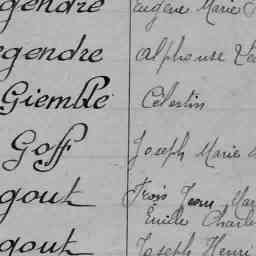 gendre Eugène Marie
gendre Alphonse
Giemble Célestin
Goff Joseph Marie
gout François Jean Mar
Emile Charle
gout Joseph Henri